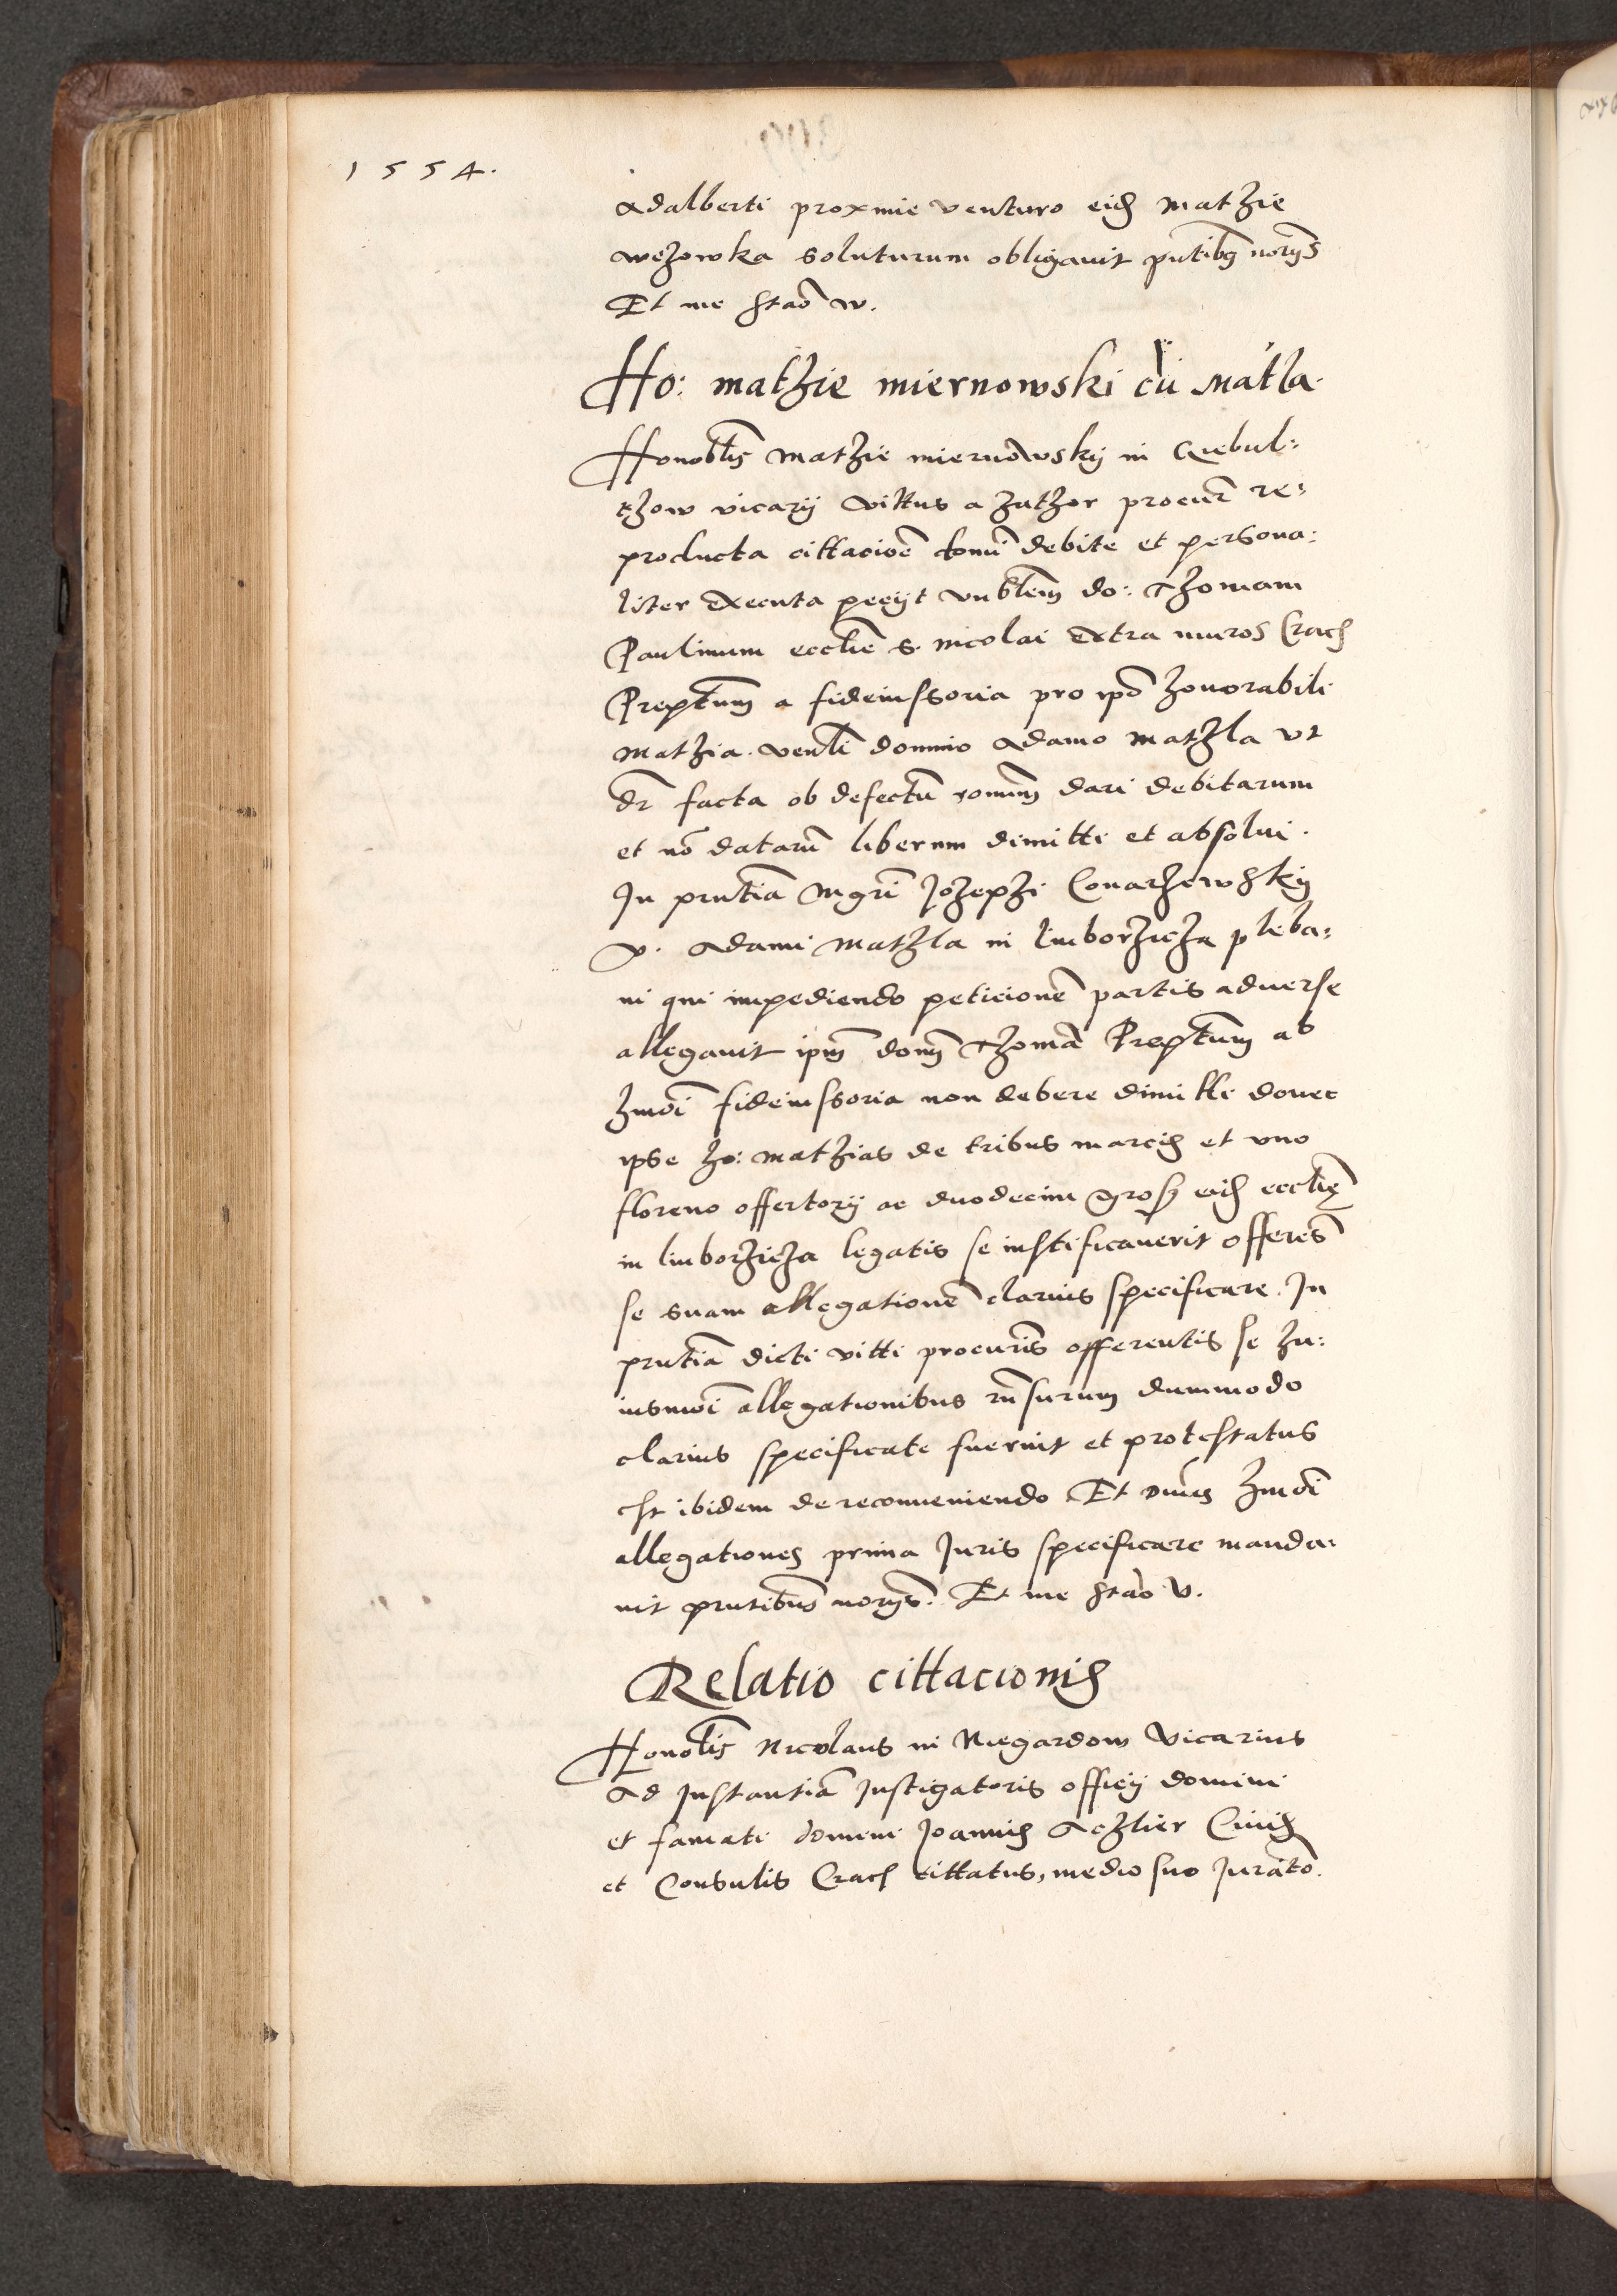 1554.
Adalberti proxmie venturo eid Mathie
Wezowka soluturum obligavit pntibg norys
Et me Stao w.
Ho: Mathie Miernowski cu Matla.
Honoblis Mathie miernowsky in Cebul:
thow vicarÿ Vittus a Zathor procur re:
producta cittacioe domi debite et persona:
liter executa petÿt vnblem do: Thomam
Paulinum ecclie s. Nicolai extra muros Crac
Preptum a fideiussoria pro ipo honorabili
Mathia venli domino Adamo Mathla vt
dr facta ob defectu romm dari debitarum
et no dataru liberum dimitti et absolui.
In pntia Mgri Jozephi Conarzewsky
p. Adami Mathla in Luborzicza pleba:
ni qui impediendo peticione partis aduerse
allegauit ipm dom Thoma Preptum ab
hmoi fideiussoria non debere dimitti donec
ipse ho: Mathias de tribus marcis et vno
floreno offertorÿ ac duodecim gross eid ecclie
in Luborzicza legatis se iustificauerit offeres
se suam allegatione clarius specificare. In
pntia dicti vitti procuris offerentis se hu:
iusmoi allegationibus rnsurum dummodo
clarius specificate fuerint et protestatus
est ibidem de reconueniendo Et dms hmoi
allegationes prima Juris specificare manda:
uit pntibus norys. Et me Stao v.
Relatio cittacionis
Honolis Nicolaus in Niegardow Vicarius
Ad Instantia Instigatoris officÿ domini
et famati domini Joannis Aczlier Ciuis
et Consulis Crac cittatus, medio suo Jurato.